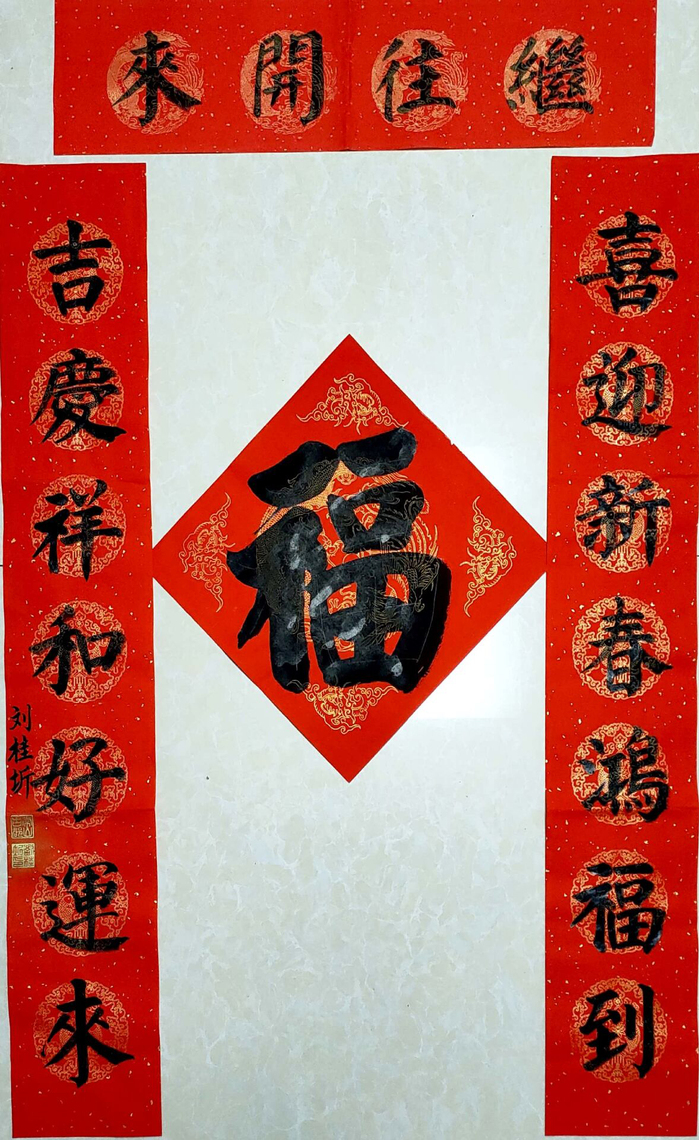 繼往開來
喜迎新春鴻福到
吉慶祥和好運來
福
刘桂圻